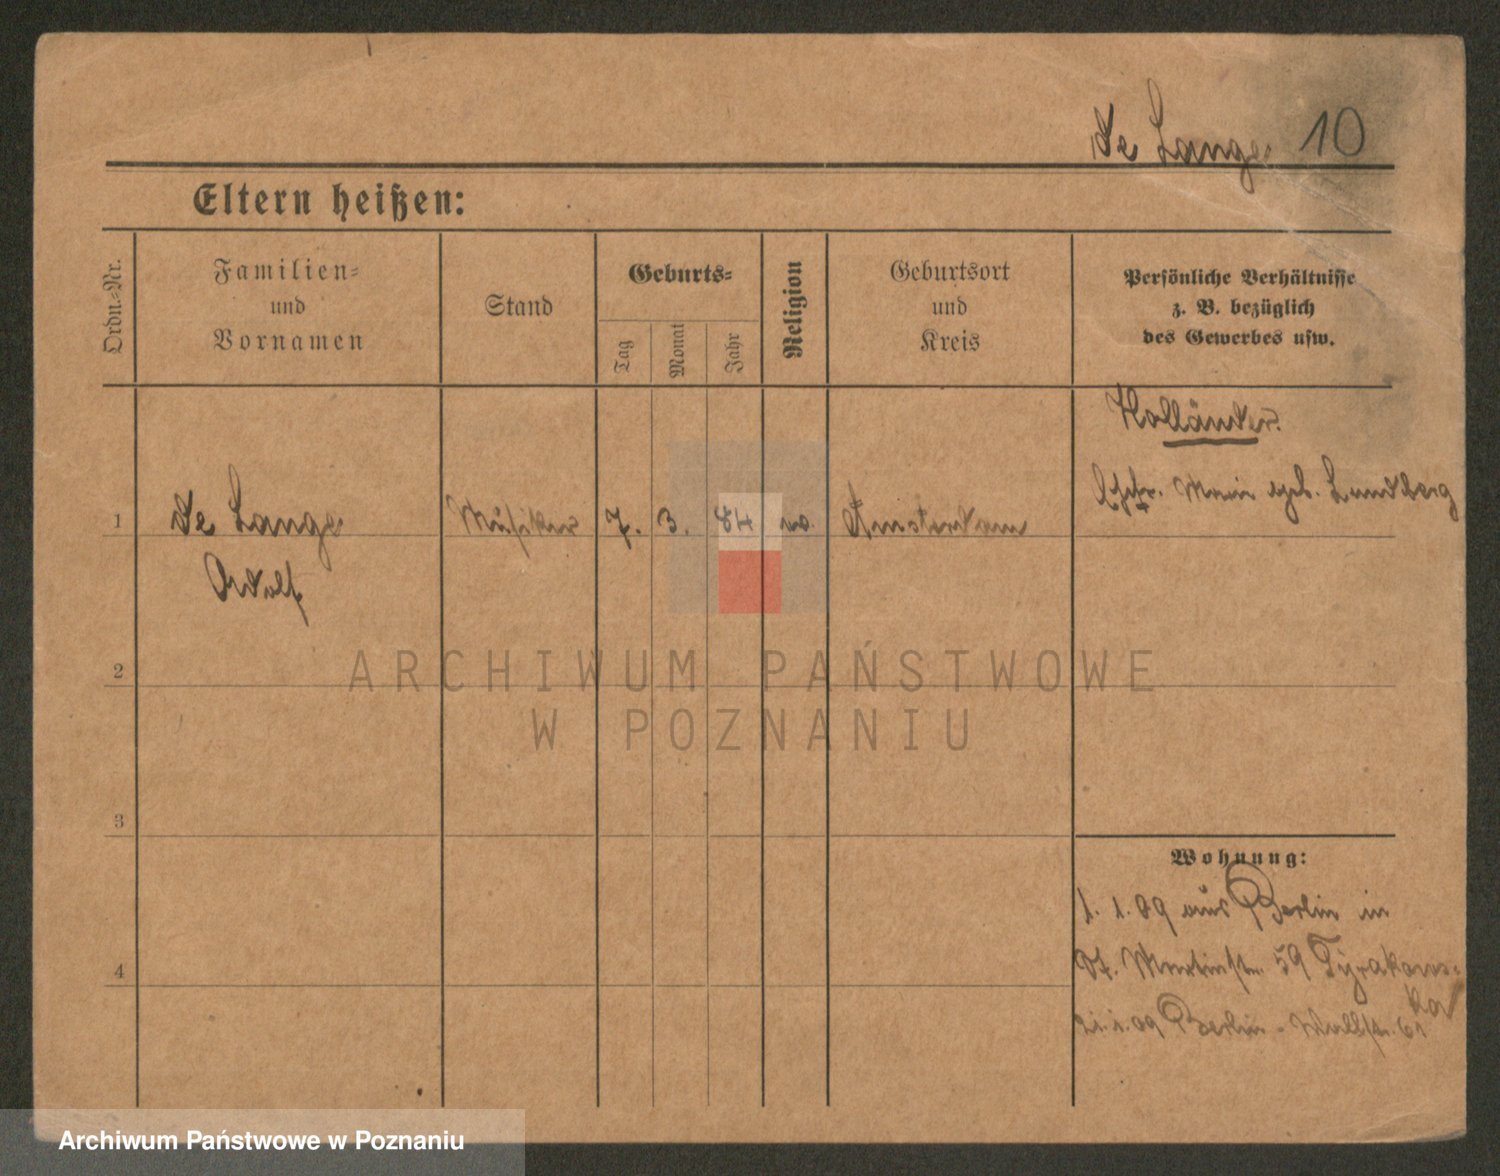 de Lange 10
Eltern heißen:
Ordn.-Nr.
Familien-
und
Vornamen
Stand
Geburts-
Tag
Monat
Jahr
Religion
Geburtsort
und
Kreis
Persönliche Verhältnisse
z. B. bezüglich
des Gewerbes usw.
Holländer.
Ehefr. Marie geb. Lundberg
1 de Lange Musiker 7. 3. 84 Amsterdam
Adolf
2
ARCHIWUM PAŃSTWOWE
W POZNANIU
3
Wohnung:
1. 1. 09 aus Berlin in
St. Martinstr. 59 Tyrakows-
ka
21. 1. 09 Berlin - Wallstr. 61
4
Archiwum Państwowe w Poznaniu